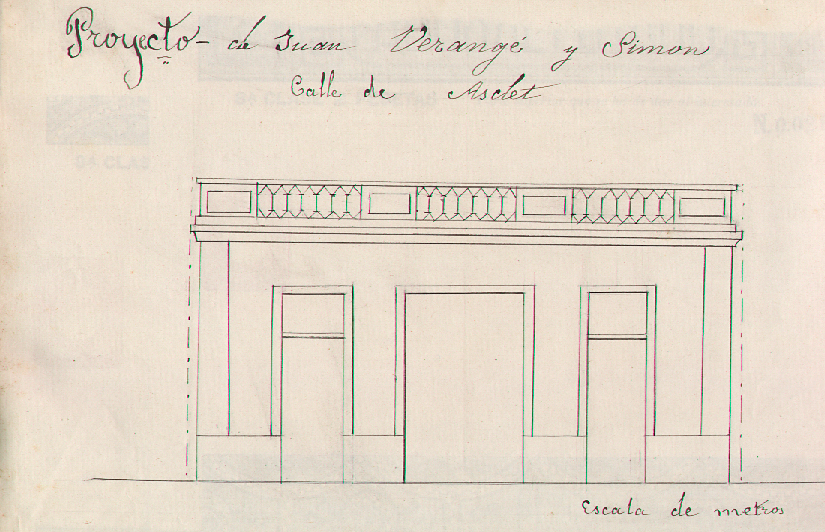 Proyecto - de Juan Verangé y Simon
Calle de Asclet
Escala de metros